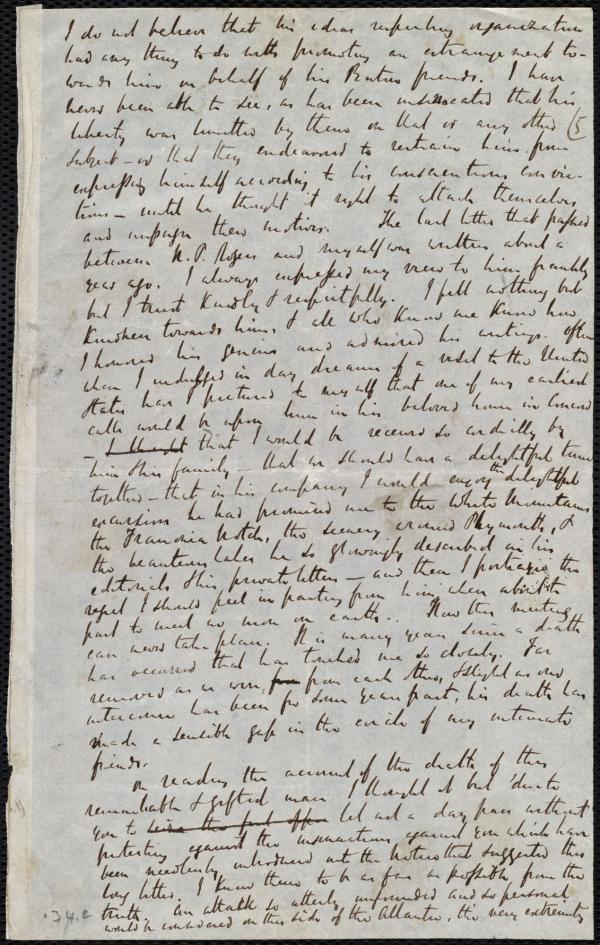 I do not believe that his ideas respecting organization
had any thing to do with promoting an estrangement to-
wards him on behalf of his Boston friends. I have
never been able to see, as has been insinuated that his
liberty was limited by them on that or any other (5
subject – or that they endeavored to restrain him from
expressing himself according to his conscientious convic-
tions – until he thought it right to attack themselves
and impugn their motives. The last letter that passed
between N.P. Rogers and myself was written about a
year ago. I always expressed my views to him frankly
but I trust kindly & respectfully. I felt nothing but
kindness towards him, & all who know me know how
I honored his genius and admired his writings. Often
when I indulged in day dreams of a visit to the United
States have I pictured to myself that one of my earliest
calls would be upon him in his beloved home in Concord
– I thought that I would be received so cordially by
him & his family – that we should have a delightful time
together – that in his company I would enjoy the delightful
excursion he had promised me to the White Mountains
the Franconia Notch, the scenery around Plymouth, &
the beauteous lakes he so glowingly described in his
editorials & his private letters – and then I portrayed the
regret I should feel in parting from him when about to
part to meet no more on earth.. Now this meeting
can never take place. It is many years since a death
has occurred that has touched me so closely. Far
removed as we were, from from each other, & slight as our
intercourse has been for some years past, his death has
made a sensible gap in the circle of my intimate
friends.
On reading the account of the death of this
remarkable & gifted man I thought it but due to
you to let not a day pass without
protesting against the insinuations against you which have
been needlessly introduced into the notice that suggested this
long letter. I know them to be as far as possible from the
truth. An attack so utterly unfounded and so personal
would be considered on this side of the Atlantic, the very extremity
34.c